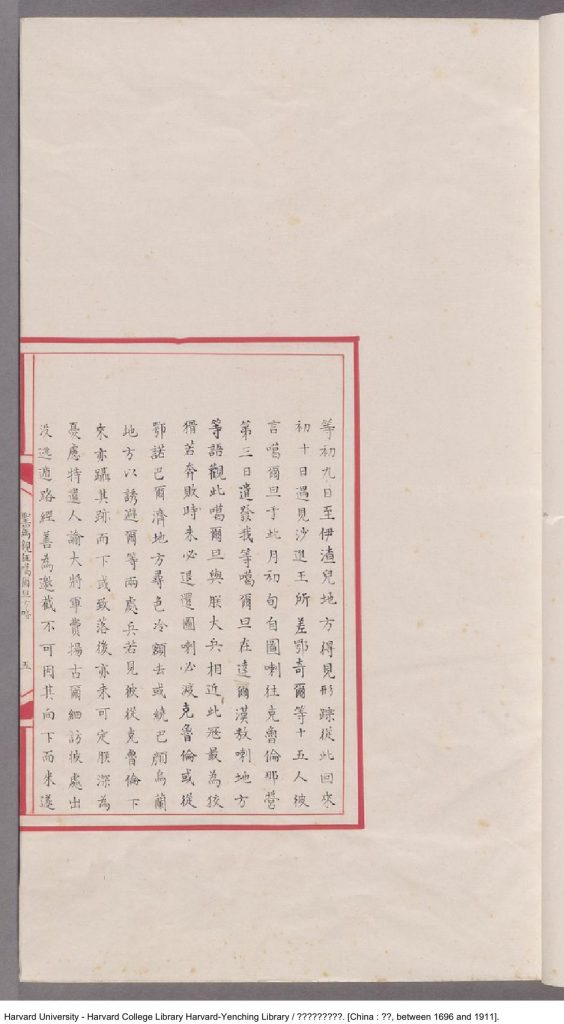 等初九日至伊渣兒地方得見形踪從此回來
初十日遇見沙進王所差鄂奇爾等十五人彼
言噶爾旦于此月初旬自圖喇往克魯倫那營
第三日遣發我等噶爾旦在達爾漢敖喇地方
等語觀此噶爾旦與朕大兵相近此冦最為狡
猾若奔敗時未必退還圖喇必渡克魯倫或從
鄂諾巴爾濟地方尋色冷額去或繞巴顏烏蘭
地方以誘避爾等兩處兵若見彼從克魯倫下
來亦躡其跡而下或致落後亦未可定朕深為
憂應特遣人諭大將軍費揚古爾細訪彼處出
没逃遁路經善為邀截不可因其向下而來遂
聖駕親征噶爾旦方畧
五
Harvard University - Harvard College Library Harvard-Yenching Library / ?????????. [China : ??, between 1696 and 1911].